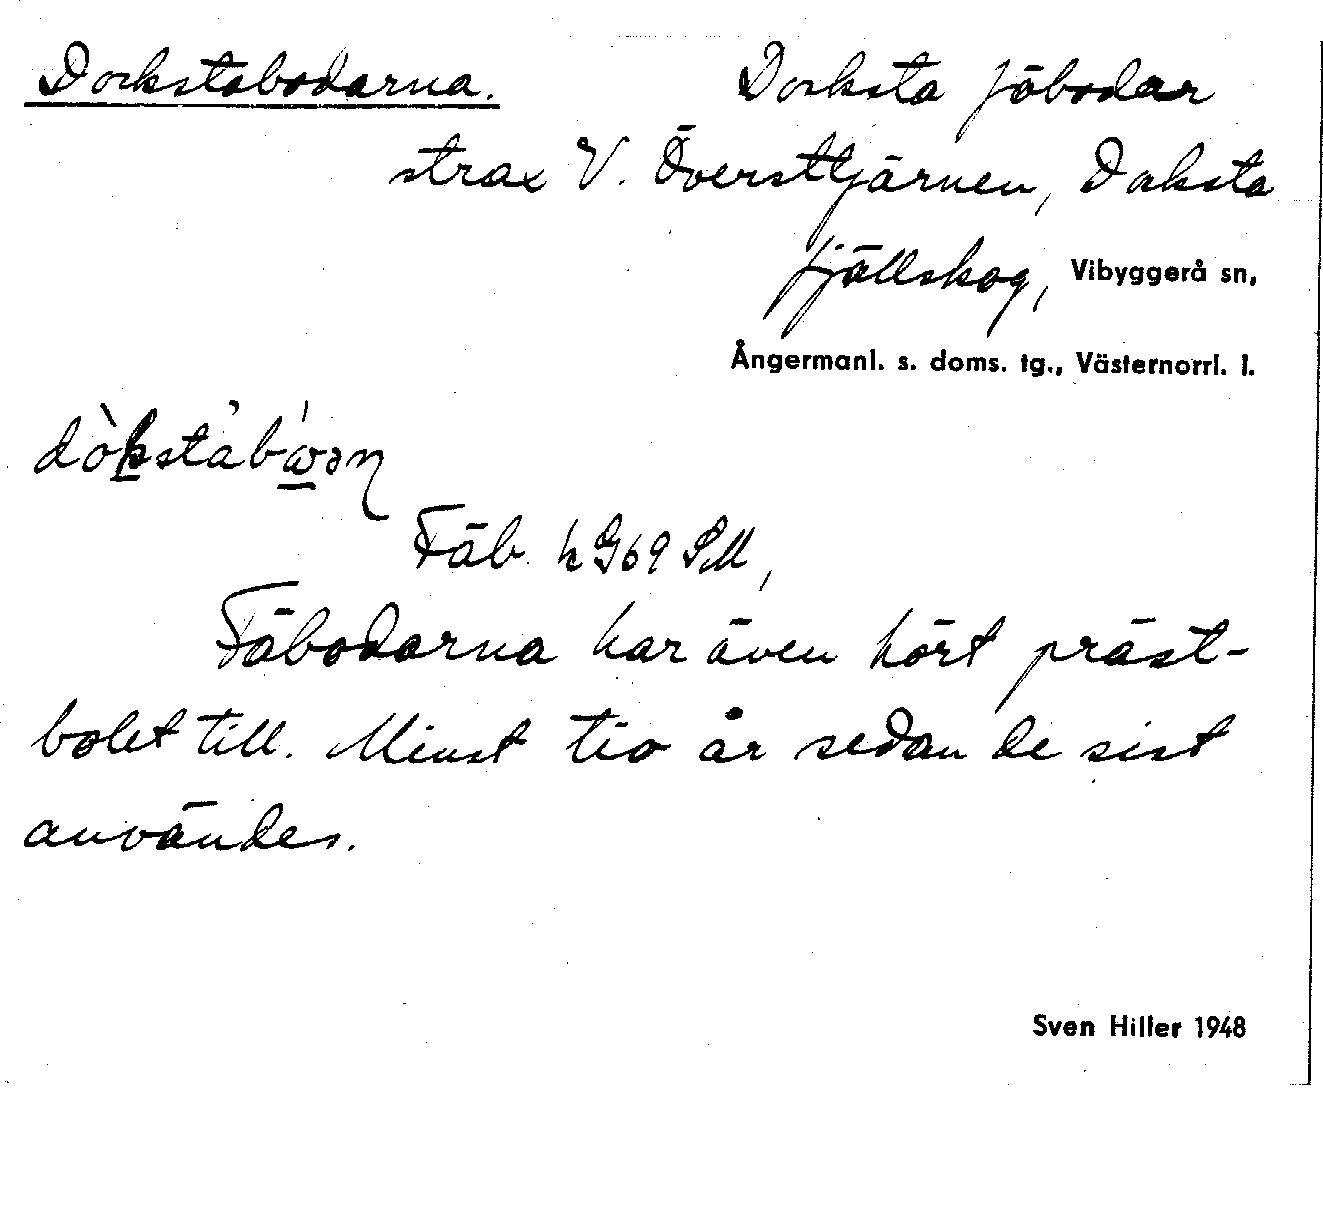 Dockstabodarna. Docksta fäbodar
strax V. Översttjärnen, Docksta
fjällskog, Vibyggerå sn,
Ångermanl. s. doms. tg., Västernorrl. l.
Fäb. h G69 SM,
Fäbodarna har även hört präst-
bolet till. Minst tio år sedan de sist
användes.
Sven Hiller 1948